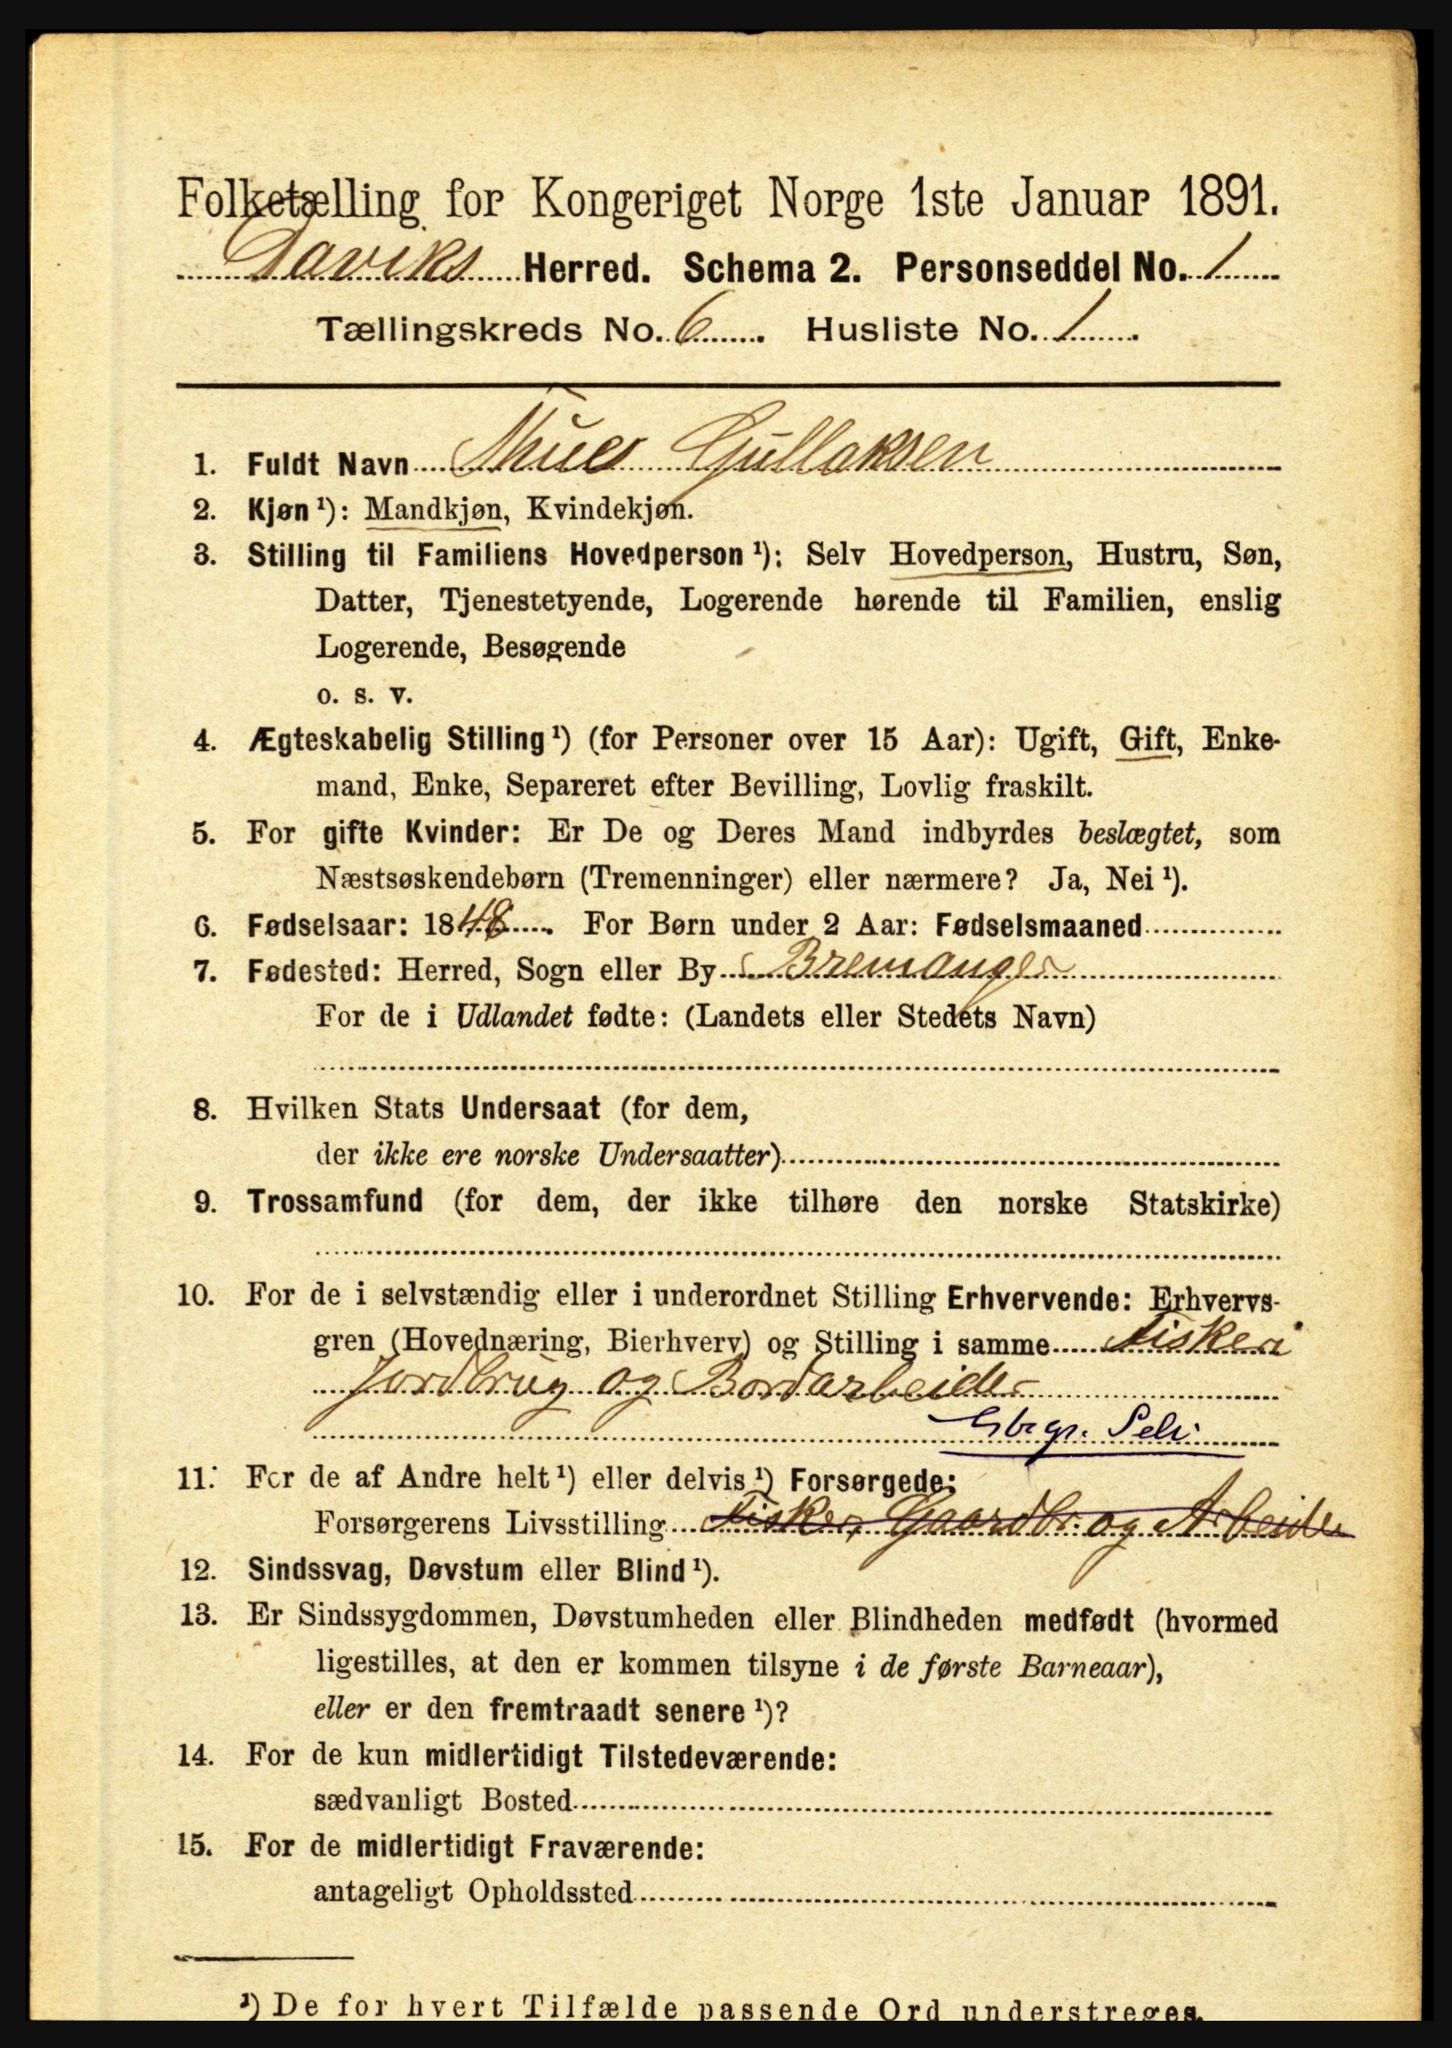 Folketælling for Kongeriget Norge 1ste Januar 1891.
Daviks Herred. Schema 2. Personseddel No. 1
Tællingskreds No. 6. Husliste No. 1.
1. Fuldt Navn Thues Gullaksen
2. Kjøn ¹): Mandkjøn, Kvindekjøn.
3. Stilling til Familiens Hovedperson ¹): Selv Hovedperson, Hustru, Søn,
Datter, Tjenestetyende, Logerende hørende til Familien, enslig
Logerende, Besøgende
o. s. v.
4. Ægteskabelig Stilling ¹) (for Personer over 15 Aar): Ugift, Gift, Enke-
mand, Enke, Separeret efter Bevilling, Lovlig fraskilt.
5. For gifte Kvinder: Er De og Deres Mand indbyrdes beslægtet, som
Næstsøskendebørn (Tremenninger) eller nærmere? Ja, Nei ¹).
6. Fødselsaar: 1848. For Børn under 2 Aar: Fødselsmaaned
7. Fødested: Herred, Sogn eller By Bremanger
For de i Udlandet fødte: (Landets eller Stedets Navn)
8. Hvilken Stats Undersaat (for dem,
der ikke ere norske Undersaatter)
9. Trossamfund (for dem, der ikke tilhøre den norske Statskirke)
10. For de i selvstændig eller i underordnet Stilling Erhvervende: Erhvervs-
gren (Hovednæring, Bierhverv) og Stilling i samme Fiskeri
Jordbrug og Bordarbeider
Gbgr. Selv
11. For de af Andre helt ¹) eller delvis ¹) Forsørgede:
Forsørgerens Livsstilling Fisker, Gaardbr. og Arbeider
12. Sindssvag, Døvstum eller Blind ¹).
13. Er Sindssygdommen, Døvstumheden eller Blindheden medfødt (hvormed
ligestilles, at den er kommen tilsyne i de første Barneaar),
eller er den fremtraadt senere ¹)?
14. For de kun midlertidigt Tilstedeværende:
sædvanligt Bosted
15. For de midlertidigt Fraværende:
antageligt Opholdssted
¹) De for hvert Tilfælde passende Ord understreges.